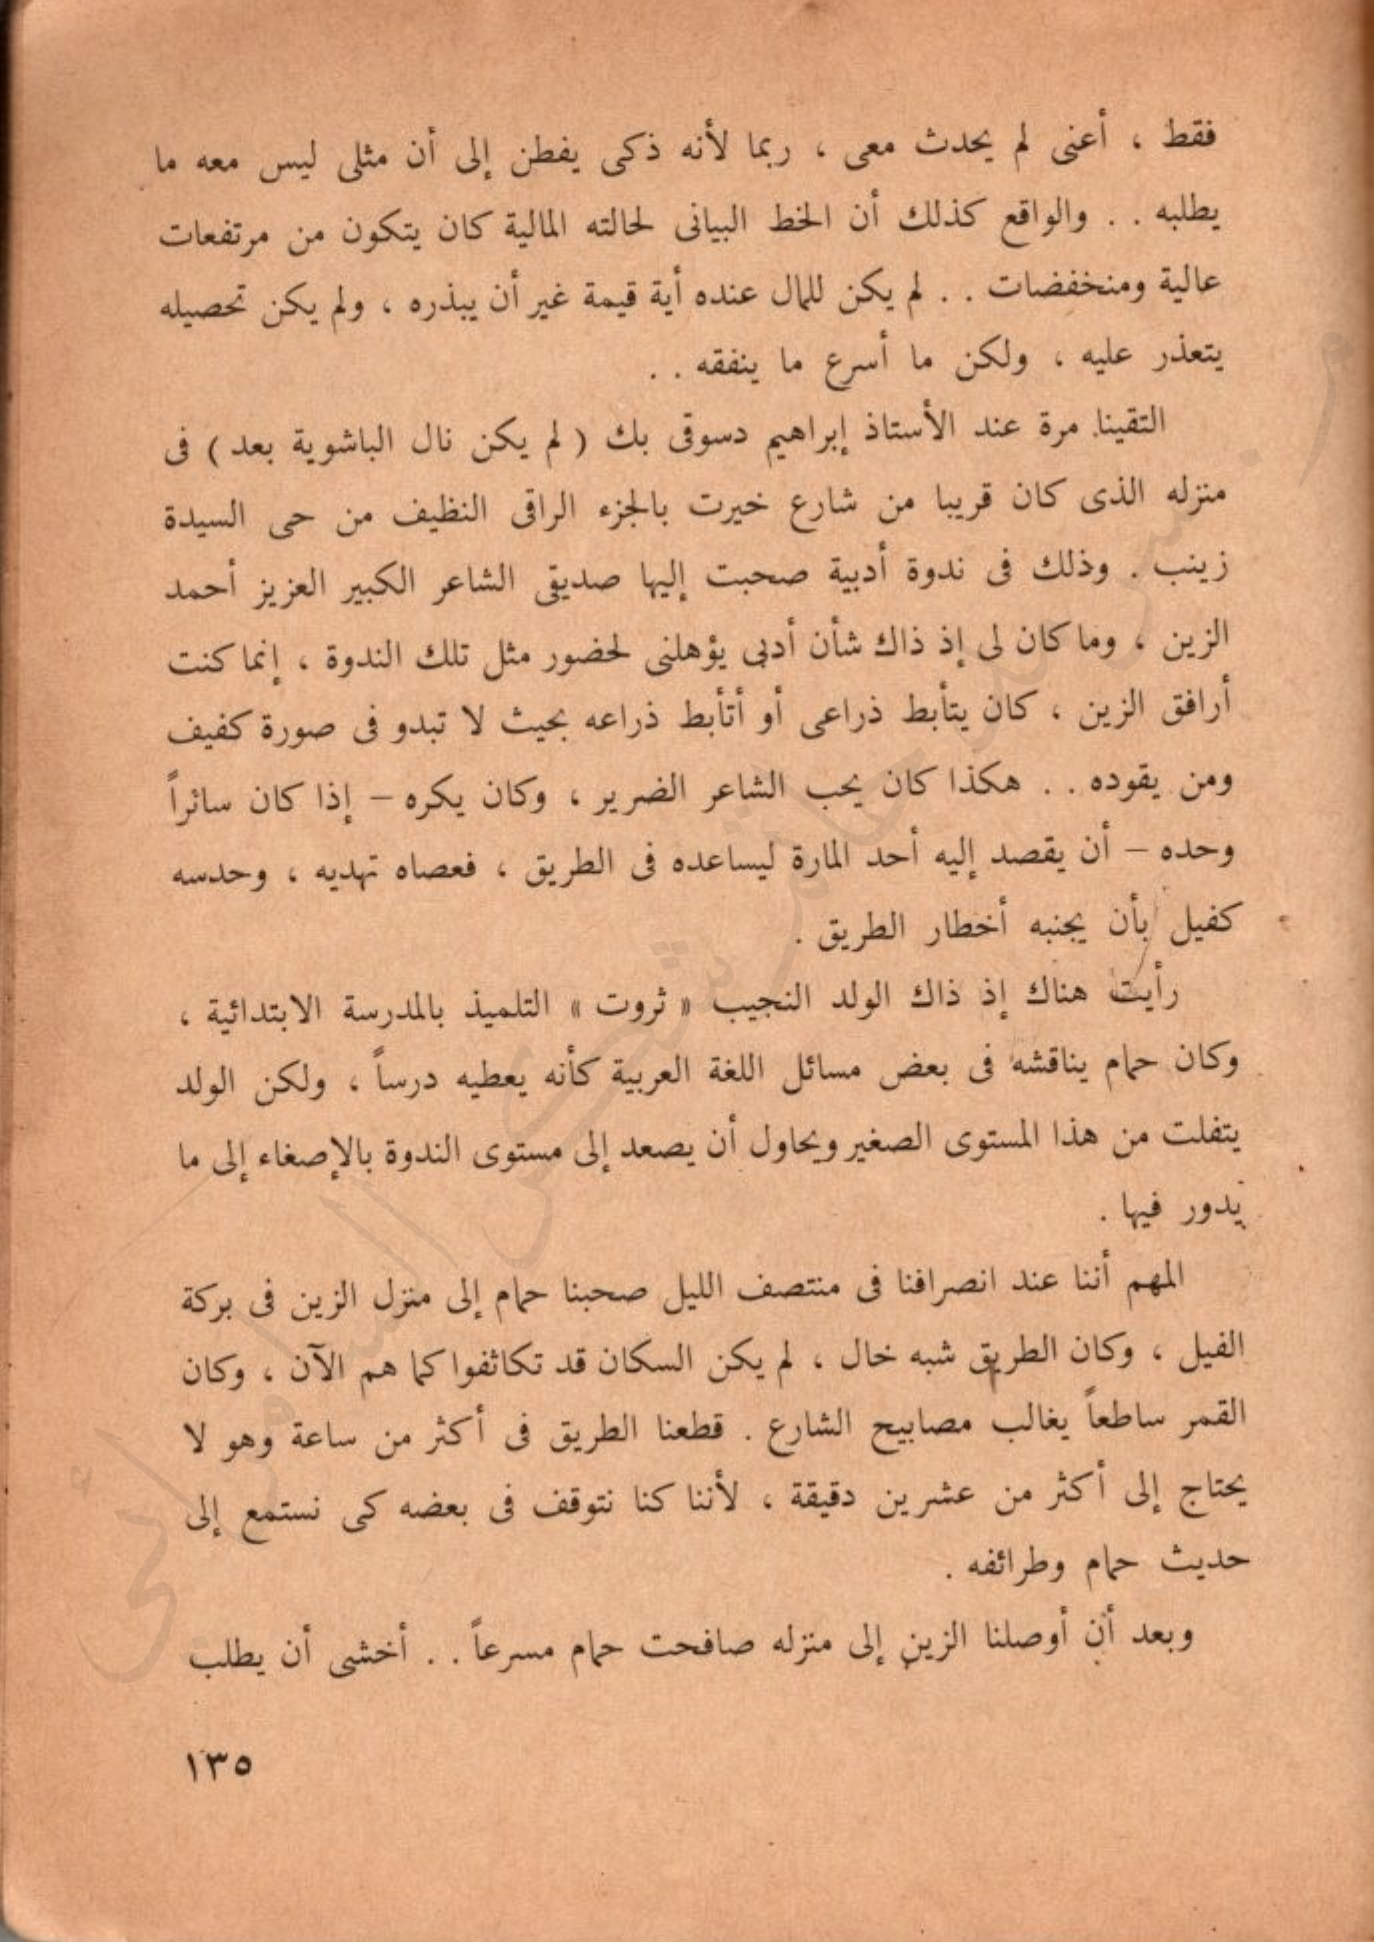 فقط ، أعنى لم يحدث معى ، ربما لأنه ذكى يفطن إلى أن مثلى ليس معه ما
يطلبه . . والواقع كذلك أن الخط البيانى لحالته المالية كان يتكون من مرتفعات
عالية ومنخفضات . . لم يكن للمال عنده أية قيمة غير أن يبذره ، ولم يكن تحصيله
يتعذر عليه ، ولكن ما أسرع ما ينفقه . .
التقينا مرة عند الأستاذ إبراهيم دسوقى بك ( لم يكن نال الباشوية بعد ) فى
منزله الذى كان قريبا من شارع خيرت بالجزء الراقى النظيف من حى السيدة
زينب . وذلك فى ندوة أدبية صحبت إليها صديقى الشاعر الكبير العزيز أحمد
الزين ، وما كان لى إذ ذاك شأن أدبى يؤهلنى لحضور مثل تلك الندوة ، إنما كنت
أرافق الزين ، كان يتأبط ذراعى أو أتأبط ذراعه بحيث لا تبدو فى صورة كفيف
ومن يقوده . . هكذا كان يحب الشاعر الضرير ، وكان يكره – إذا كان سائراً
وحده – أن يقصد إليه أحد المارة ليساعده فى الطريق ، فعصاه تهديه ، وحدسه
كفيل بأن يجنبه أخطار الطريق .
رأيت هناك إذ ذاك الولد النجيب « ثروت » التلميذ بالمدرسة الابتدائية ،
وكان حمام يناقشه فى بعض مسائل اللغة العربية كأنه يعطيه درساً ، ولكن الولد
يتفلت من هذا المستوى الصغير ويحاول أن يصعد إلى مستوى الندوة بالإصغاء إلى ما
يدور فيها .
المهم أننا عند انصرافنا فى منتصف الليل صحبنا حمام إلى منزل الزين فى بركة
الفيل ، وكان الطريق شبه خال ، لم يكن السكان قد تكاثفوا كما هم الآن ، وكان
القمر ساطعاً يغالب مصابيح الشارع . قطعنا الطريق فى أكثر من ساعة وهو لا
يحتاج إلى أكثر من عشرين دقيقة ، لأننا كنا نتوقف فى بعضه كى نستمع إلى
حديث حمام وطرائفه .
وبعد أن أوصلنا الزين إلى منزله صافحت حمام مسرعاً . . أخشى أن يطلب
١٣٥